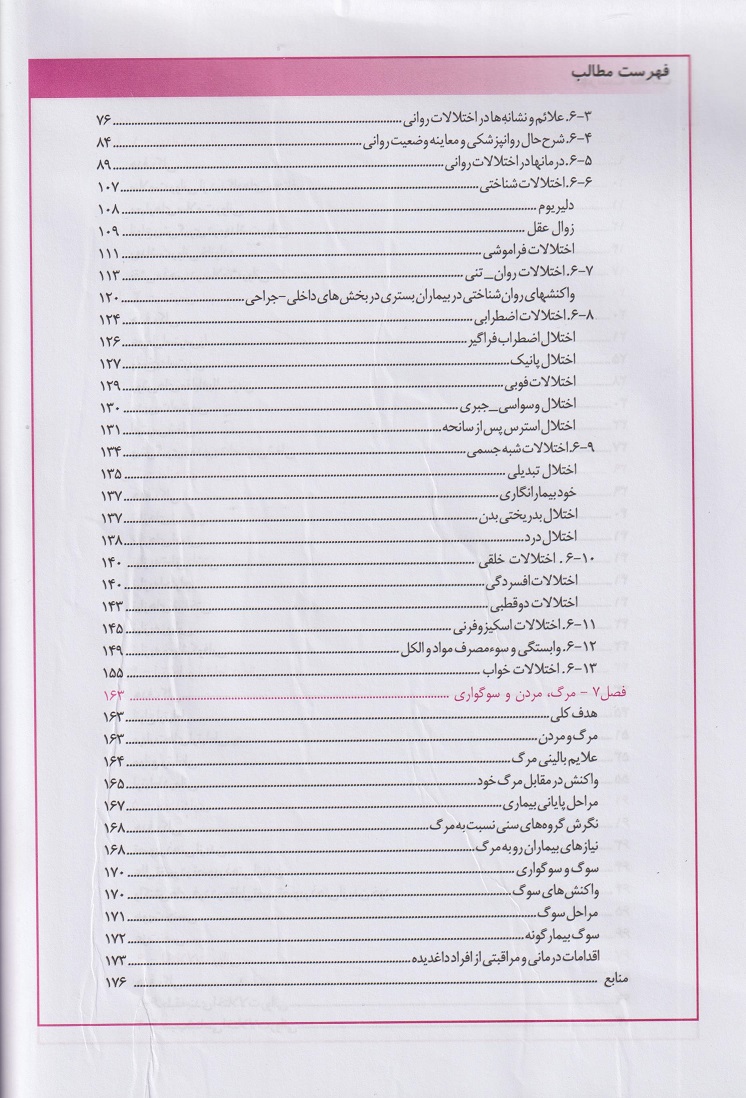 فهرست مطالب
۶-۳. علائم و نشانه‌ها در اختلالات روانی ........ ۷۶
۶-۴. شرح حال روانپزشکی و معاینه وضعیت روانی ........ ۸۴
۶-۵. درمانها در اختلالات روانی ........ ۸۹
۶-۶. اختلالات شناختی ........ ۱۰۷
دلیریوم ........ ۱۰۸
زوال عقل ........ ۱۰۹
اختلالات فراموشی ........ ۱۱۱
۶-۷. اختلالات روان_تنی ........ ۱۱۳
واکنشهای روان شناختی در بیماران بستری در بخش های داخلی-جراحی ........ ۱۲۰
۶-۸. اختلالات اضطرابی ........ ۱۲۴
اختلال اضطراب فراگیر ........ ۱۲۶
اختلال پانیک ........ ۱۲۷
اختلالات فوبی ........ ۱۲۹
اختلال وسواسی_جبری ........ ۱۳۰
اختلال استرس پس از سانحه ........ ۱۳۱
۶-۹. اختلالات شبه جسمی ........ ۱۳۴
اختلال تبدیلی ........ ۱۳۵
خودبیمارانگاری ........ ۱۳۷
اختلال بدریختی بدن ........ ۱۳۷
اختلال درد ........ ۱۳۸
۶-۱۰. اختلالات خلقی ........ ۱۴۰
اختلالات افسردگی ........ ۱۴۰
اختلالات دوقطبی ........ ۱۴۳
۶-۱۱. اختلالات اسکیزوفرنی ........ ۱۴۵
۶-۱۲. وابستگی و سوءمصرف مواد و الکل ........ ۱۴۹
۶-۱۳. اختلالات خواب ........ ۱۵۵
فصل ۷ - مرگ، مردن و سوگواری ........ ۱۶۳
هدف کلی ........ ۱۶۳
مرگ و مردن ........ ۱۶۳
علایم بالینی مرگ ........ ۱۶۴
واکنش در مقابل مرگ خود ........ ۱۶۵
مراحل پایانی بیماری ........ ۱۶۷
نگرش گروه‌های سنی نسبت به مرگ ........ ۱۶۸
نیازهای بیماران رو به مرگ ........ ۱۶۸
سوگ و سوگواری ........ ۱۷۰
واکنش‌های سوگ ........ ۱۷۰
مراحل سوگ ........ ۱۷۱
سوگ بیمارگونه ........ ۱۷۲
اقدامات درمانی و مراقبتی از افراد داغدیده ........ ۱۷۳
منابع ........ ۱۷۶